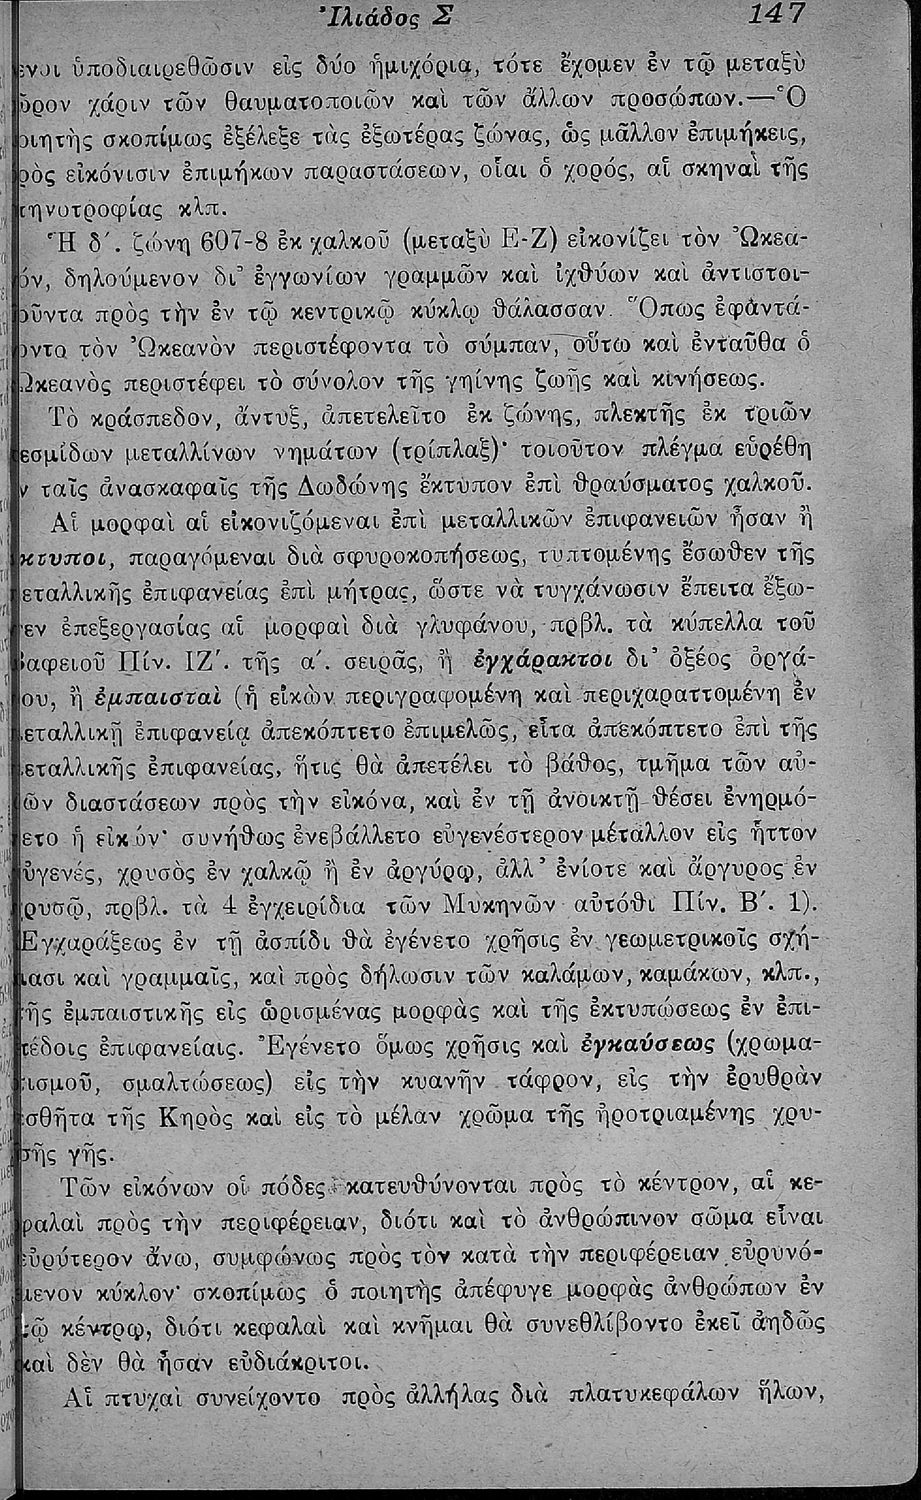 Ἰλιάδος Σ 147
ὑποδιαιρεθῶσιν εἰς δύο ἡμιχόρια, τότε ἔχομεν ἐν τῷ μεταξὺ
χάριν τῶν θαυματοποιῶν καὶ τῶν ἄλλων προσώπων.—Ὁ
σκοπίμως ἐξέλεξε τὰς ἐξωτέρας ζώνας, ὡς μᾶλλον ἐπιμήκεις,
εἰκόνισιν ἐπιμήκων παραστάσεων, οἷαι ὁ χορός, αἱ σκηναὶ τῆς
κλπ.
Ἡ δ΄. ζώνη 607-8 ἐκ χαλκοῦ (μεταξὺ Ε-Ζ) εἰκονίζει τὸν Ὠκεα-
όν, δηλούμενον δι' ἐγγωνίων γραμμῶν καὶ ἰχθύων καὶ ἀντιστοι-
οῦντα πρὸς τὴν ἐν τῷ κεντρικῷ κύκλῳ θάλασσαν. Ὅπως ἐφαντά-
οντο τὸν Ὠκεανὸν περιστέφοντα τὸ σύμπαν, οὕτω καὶ ἐνταῦθα ὁ
Ὠκεανὸς περιστέφει τὸ σύνολον τῆς γηίνης ζωῆς καὶ κινήσεως.
Τὸ κράσπεδον, ἄντυξ, ἀπετελεῖτο ἐκ ζώνης, πλεκτῆς ἐκ τριῶν
εσμίδων μεταλλίνων νημάτων (τρίπλαξ)· τοιοῦτον πλέγμα εὑρέθη
ν ταῖς ἀνασκαφαῖς τῆς Δωδώνης ἔκτυπον ἐπὶ θραύσματος χαλκοῦ.
Αἱ μορφαὶ αἱ εἰκονιζόμεναι ἐπὶ μεταλλικῶν ἐπιφανειῶν ἦσαν ἢ
κτυποι, παραγόμεναι διὰ σφυροκοπήσεως, τυπτομένης ἔσωθεν τῆς
εταλλικῆς ἐπιφανείας ἐπὶ μήτρας, ὥστε νὰ τυγχάνωσιν ἔπειτα ἔξω-
εν ἐπεξεργασίας αἱ μορφαὶ διὰ γλυφάνου, πρβλ. τὰ κύπελλα τοῦ
αφειοῦ Πίν. ΙΖ΄. τῆς α΄. σειρᾶς, ἢ ἐγχάρακτοι δι' ὀξέος ὀργά-
ου, ἢ ἐμπαισταὶ (ἡ εἰκὼν περιγραφομένη καὶ περιχαραττομένη ἐν
εταλλικῇ ἐπιφανείᾳ ἀπεκόπτετο ἐπιμελῶς, εἶτα ἀπεκόπτετο ἐπὶ τῆς
εταλλικῆς ἐπιφανείας, ἥτις θὰ ἀπετέλει τὸ βάθος, τμῆμα τῶν αὐ-
ῶν διαστάσεων πρὸς τὴν εἰκόνα, καὶ ἐν τῇ ἀνοικτῇ θέσει ἐνηρμό-
ετο ἡ εἰκών· συνήθως ἐνεβάλλετο εὐγενέστερον μέταλλον εἰς ἧττον
ὐγενές, χρυσὸς ἐν χαλκῷ ἢ ἐν ἀργύρῳ, ἀλλ' ἐνίοτε καὶ ἄργυρος ἐν
ρυσῷ, πρβλ. τὰ 4 ἐγχειρίδια τῶν Μυκηνῶν αὐτόθι Πίν. Β΄. 1).
Ἐγχαράξεως ἐν τῇ ἀσπίδι θὰ ἐγένετο χρῆσις ἐν γεωμετρικοῖς σχή-
ασι καὶ γραμμαῖς, καὶ πρὸς δήλωσιν τῶν καλάμων, καμάκων, κλπ.,
ῆς ἐμπαιστικῆς εἰς ὡρισμένας μορφὰς καὶ τῆς ἐκτυπώσεως ἐν ἐπι-
έδοις ἐπιφανείαις. Ἐγένετο ὅμως χρῆσις καὶ ἐγκαύσεως (χρωμα-
ισμοῦ, σμαλτώσεως) εἰς τὴν κυανῆν τάφρον, εἰς τὴν ἐρυθρὰν
σθῆτα τῆς Κηρὸς καὶ εἰς τὸ μέλαν χρῶμα τῆς ἠροτριαμένης χρυ-
σῆς γῆς.
Τῶν εἰκόνων οἱ πόδες κατευθύνονται πρὸς τὸ κέντρον, αἱ κε-
φαλαὶ πρὸς τὴν περιφέρειαν, διότι καὶ τὸ ἀνθρώπινον σῶμα εἶναι
εὐρύτερον ἄνω, συμφώνως πρὸς τὸν κατὰ τὴν περιφέρειαν εὐρυνό-
μενον κύκλον· σκοπίμως ὁ ποιητὴς ἀπέφυγε μορφὰς ἀνθρώπων ἐν
τῷ κέντρῳ, διότι κεφαλαὶ καὶ κνῆμαι θὰ συνεθλίβοντο ἐκεῖ ἀηδῶς
καὶ δὲν θὰ ἦσαν εὐδιάκριτοι.
Αἱ πτυχαὶ συνείχοντο πρὸς ἀλλήλας διὰ πλατυκεφάλων ἥλων,